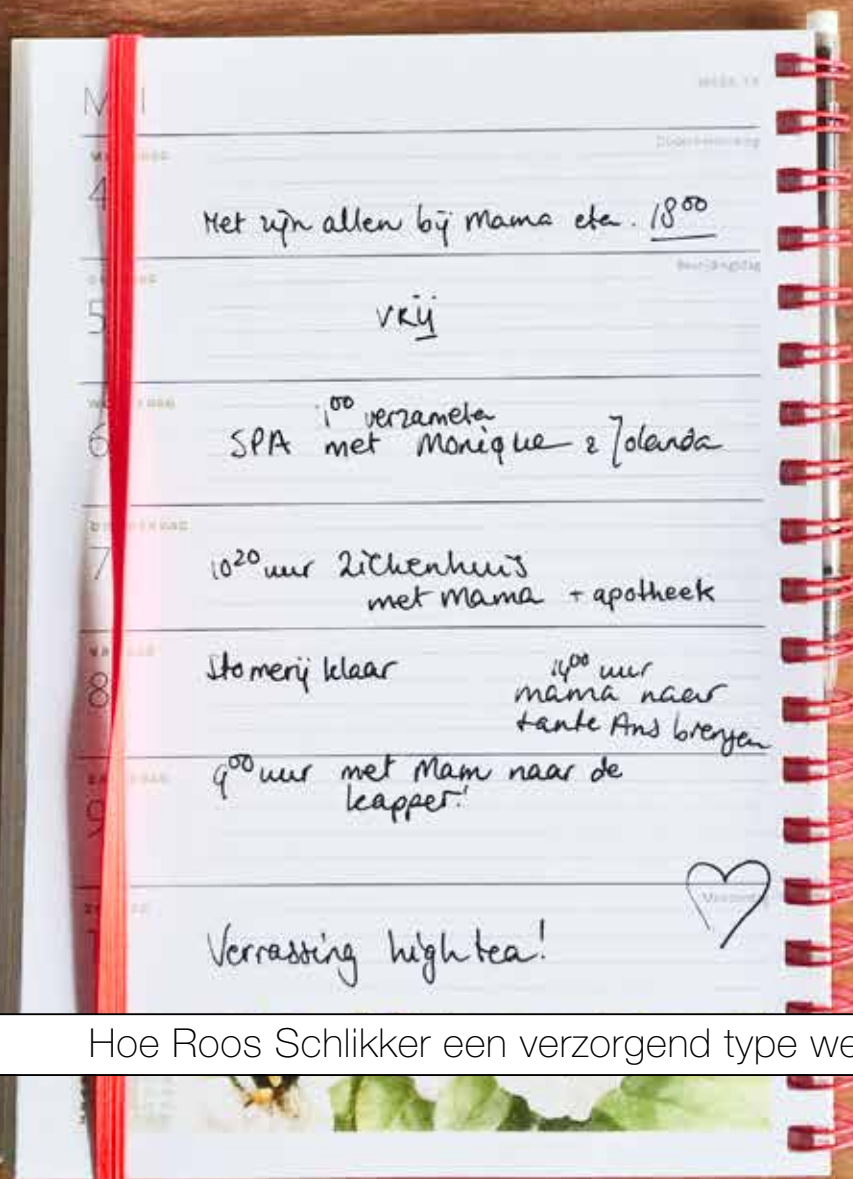 M I
Dodenherdenking
4
Met zijn allen bij Mama eten. 18⁰⁰
Bevrijdingsdag
5
VRIJ
6
1⁰⁰ verzamelen
SPA met Monique & Jolanda
7
10²⁰ uur Ziekenhuis
met Mama + apotheek
8
Stomerij klaar
14⁰⁰ uur
mama naar
tante Ans brengen
9
9⁰⁰ uur met Mam naar de
kapper!
Verrassing high tea!
Hoe Roos Schlikker een verzorgend type we